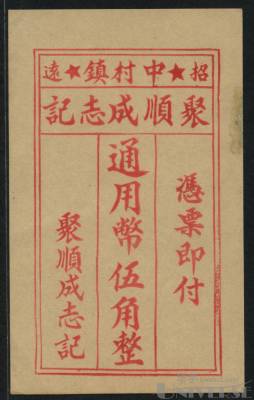 招★中村鎮★遠
聚順成志記
憑票即付
通用幣伍角整
聚順成志記
UNIVERSE